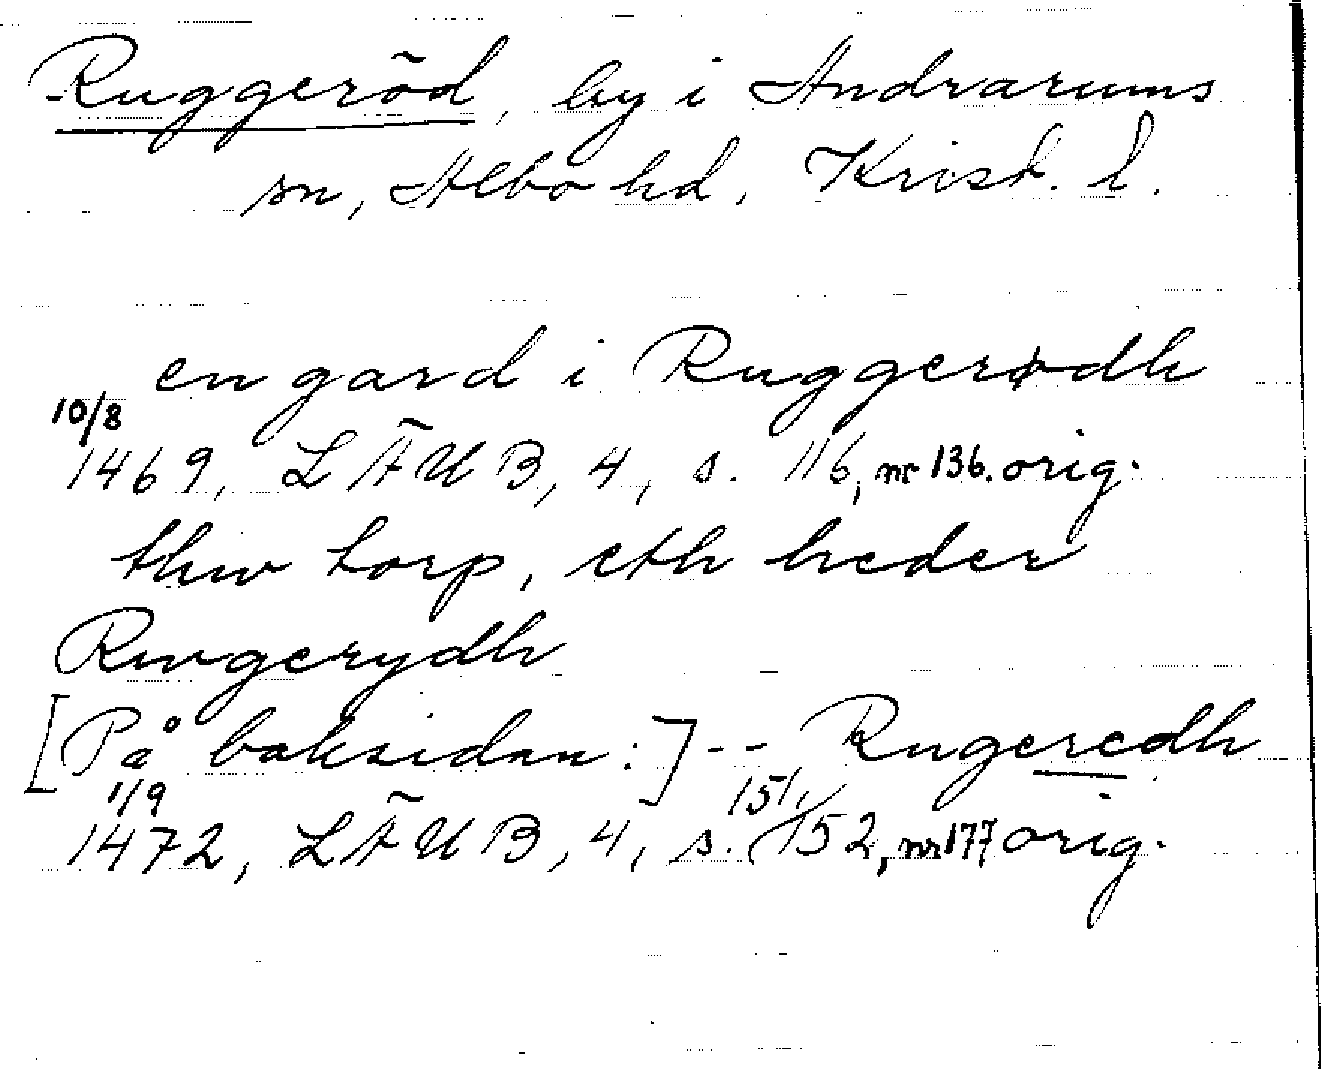 Ruggeröd, by i Andrarums
sn, Albo hd, Krist. l.
en gard i Ruggerødh
10/8
1469, LÄUB, 4, s. 116, nr 136. orig.
thw torp, eth heder
Rwgerydh
[På baksidan:] -- Rugeredh
1/9 151/
1472, LÄUB, 4, s. 152, nr 177 orig.